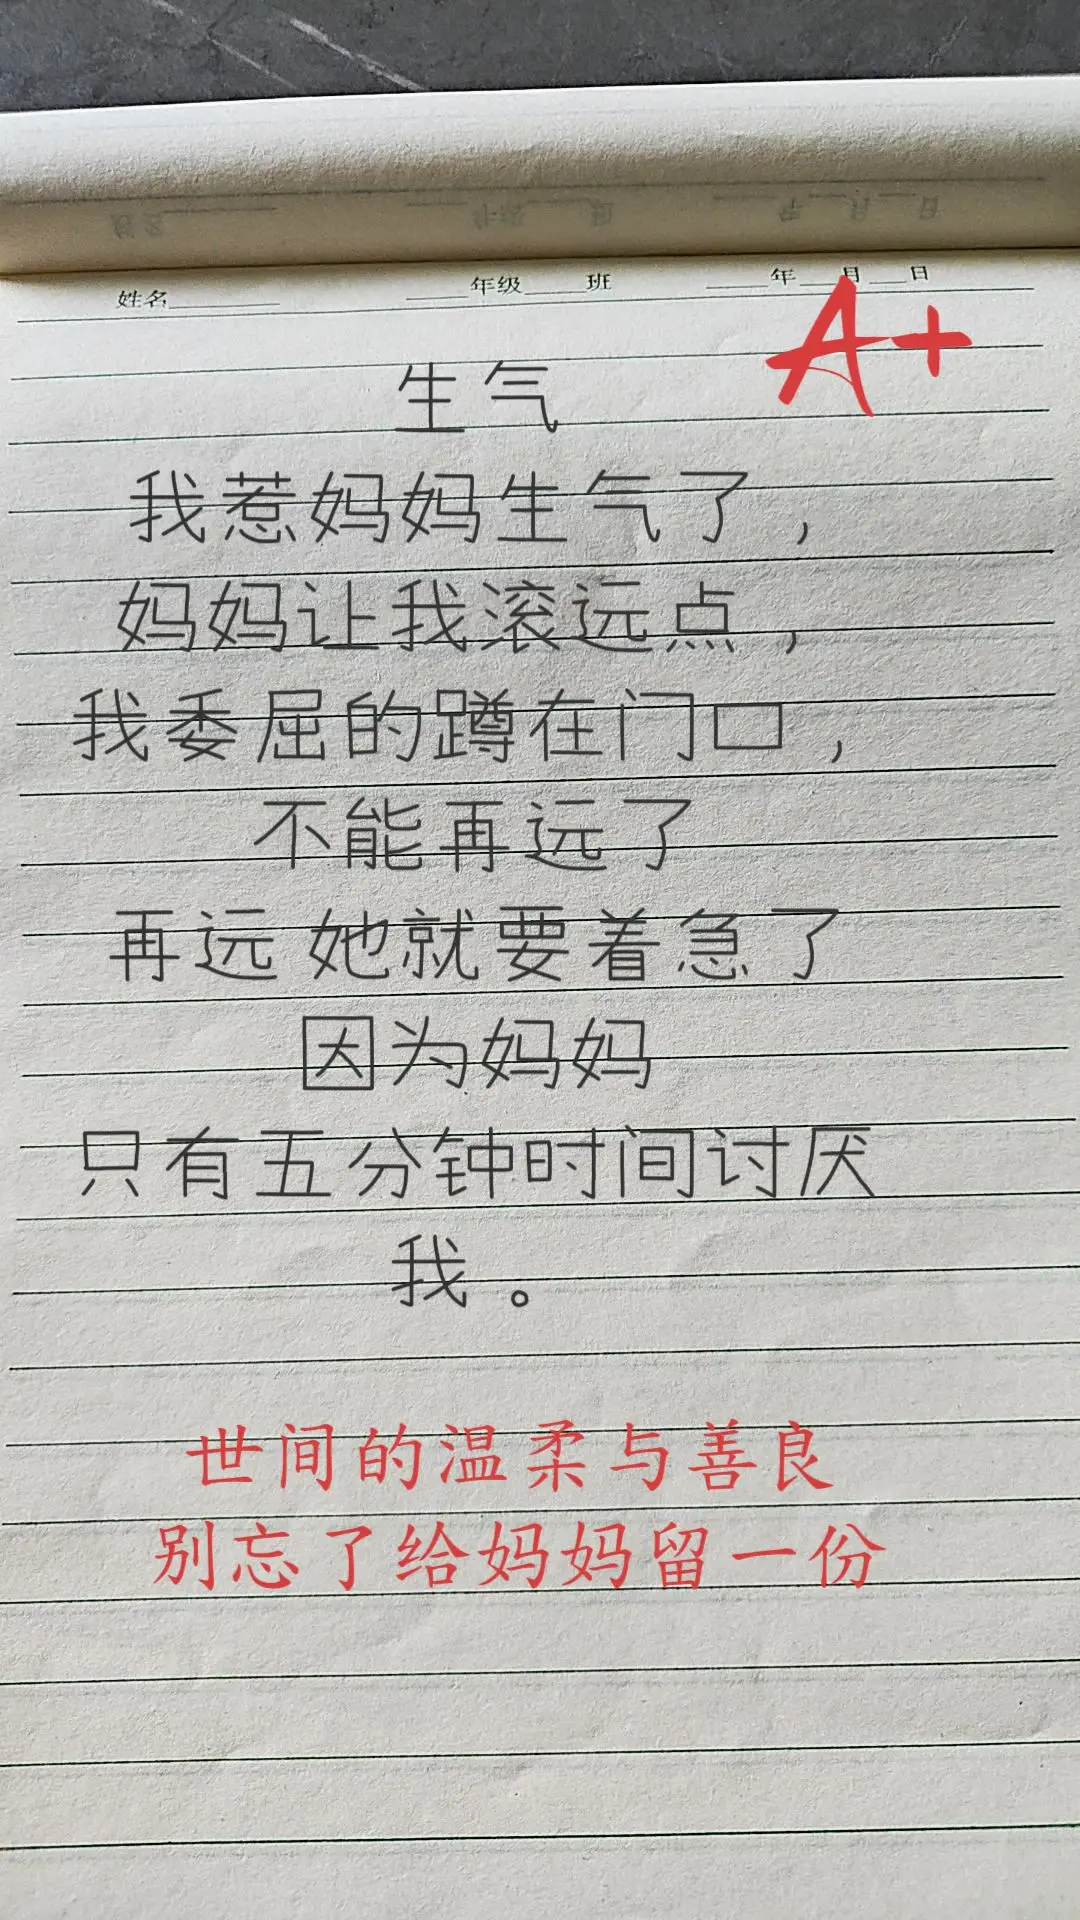 姓名 年级 班 年 月 日
A+
生气
我惹妈妈生气了，
妈妈让我滚远点，
我委屈的蹲在门口，
不能再远了
再远 她就要着急了
因为妈妈
只有五分钟时间讨厌
我。
世间的温柔与善良
别忘了给妈妈留一份